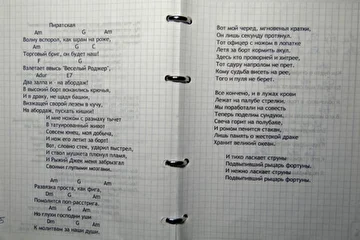 Пиратская
Am G Am
Волну вспорол, как шрам на роже,
Am G C
Торговый бриг, он будет наш!
F G Am
Взлетает ввысь "Веселый Роджер",
Adur E7
Два залпа и - на абордаж!
В высокий борт вонзились крючья,
И в драку, не щадя башки,
Визжащей сворой лезем в кучу,
На абордаж, пускать кишки!
И мне ножом с размаху тычет
В татуированный живот
Совсем юнец, моя добыча,
И нож его летит за борт!
Вот, словно стек, ударил выстрел,
И ствол мушкета плюнул пламя,
И Рыжий Джек меня забрызгал
Своими глупыми мозгами.
Am G Am
Развязка проста, как фига,
Dm G Am
Помолится поп-расстрига.
Am G Am
Но глухи господни уши
Dm G Am
К молитвам за наши души.
Вот мой черед, мгновенья кратки,
Он лишь секунду протянул.
Тот офицер с ножом в лопатке
Летя за борт кормить акул.
Здесь кто проворней и хитрее,
Тот сдуру напролом не прет.
Кому судьба висеть на рее,
Того и пуля не берет.
Все кончено, и в лужах крови
Лежат на палубе стрелки.
Мы поработали на совесть
Теперь поделим сундуки.
Свеча горит на полубаке,
И ромом пенится стакан,
Лишь память о жестокой драке
Хранит великий океан.
И тихо ласкает струны
Подвыпивший рыцарь фортуны.
И нежно ласкает струны
Подвыпивший рыцарь фортуны.